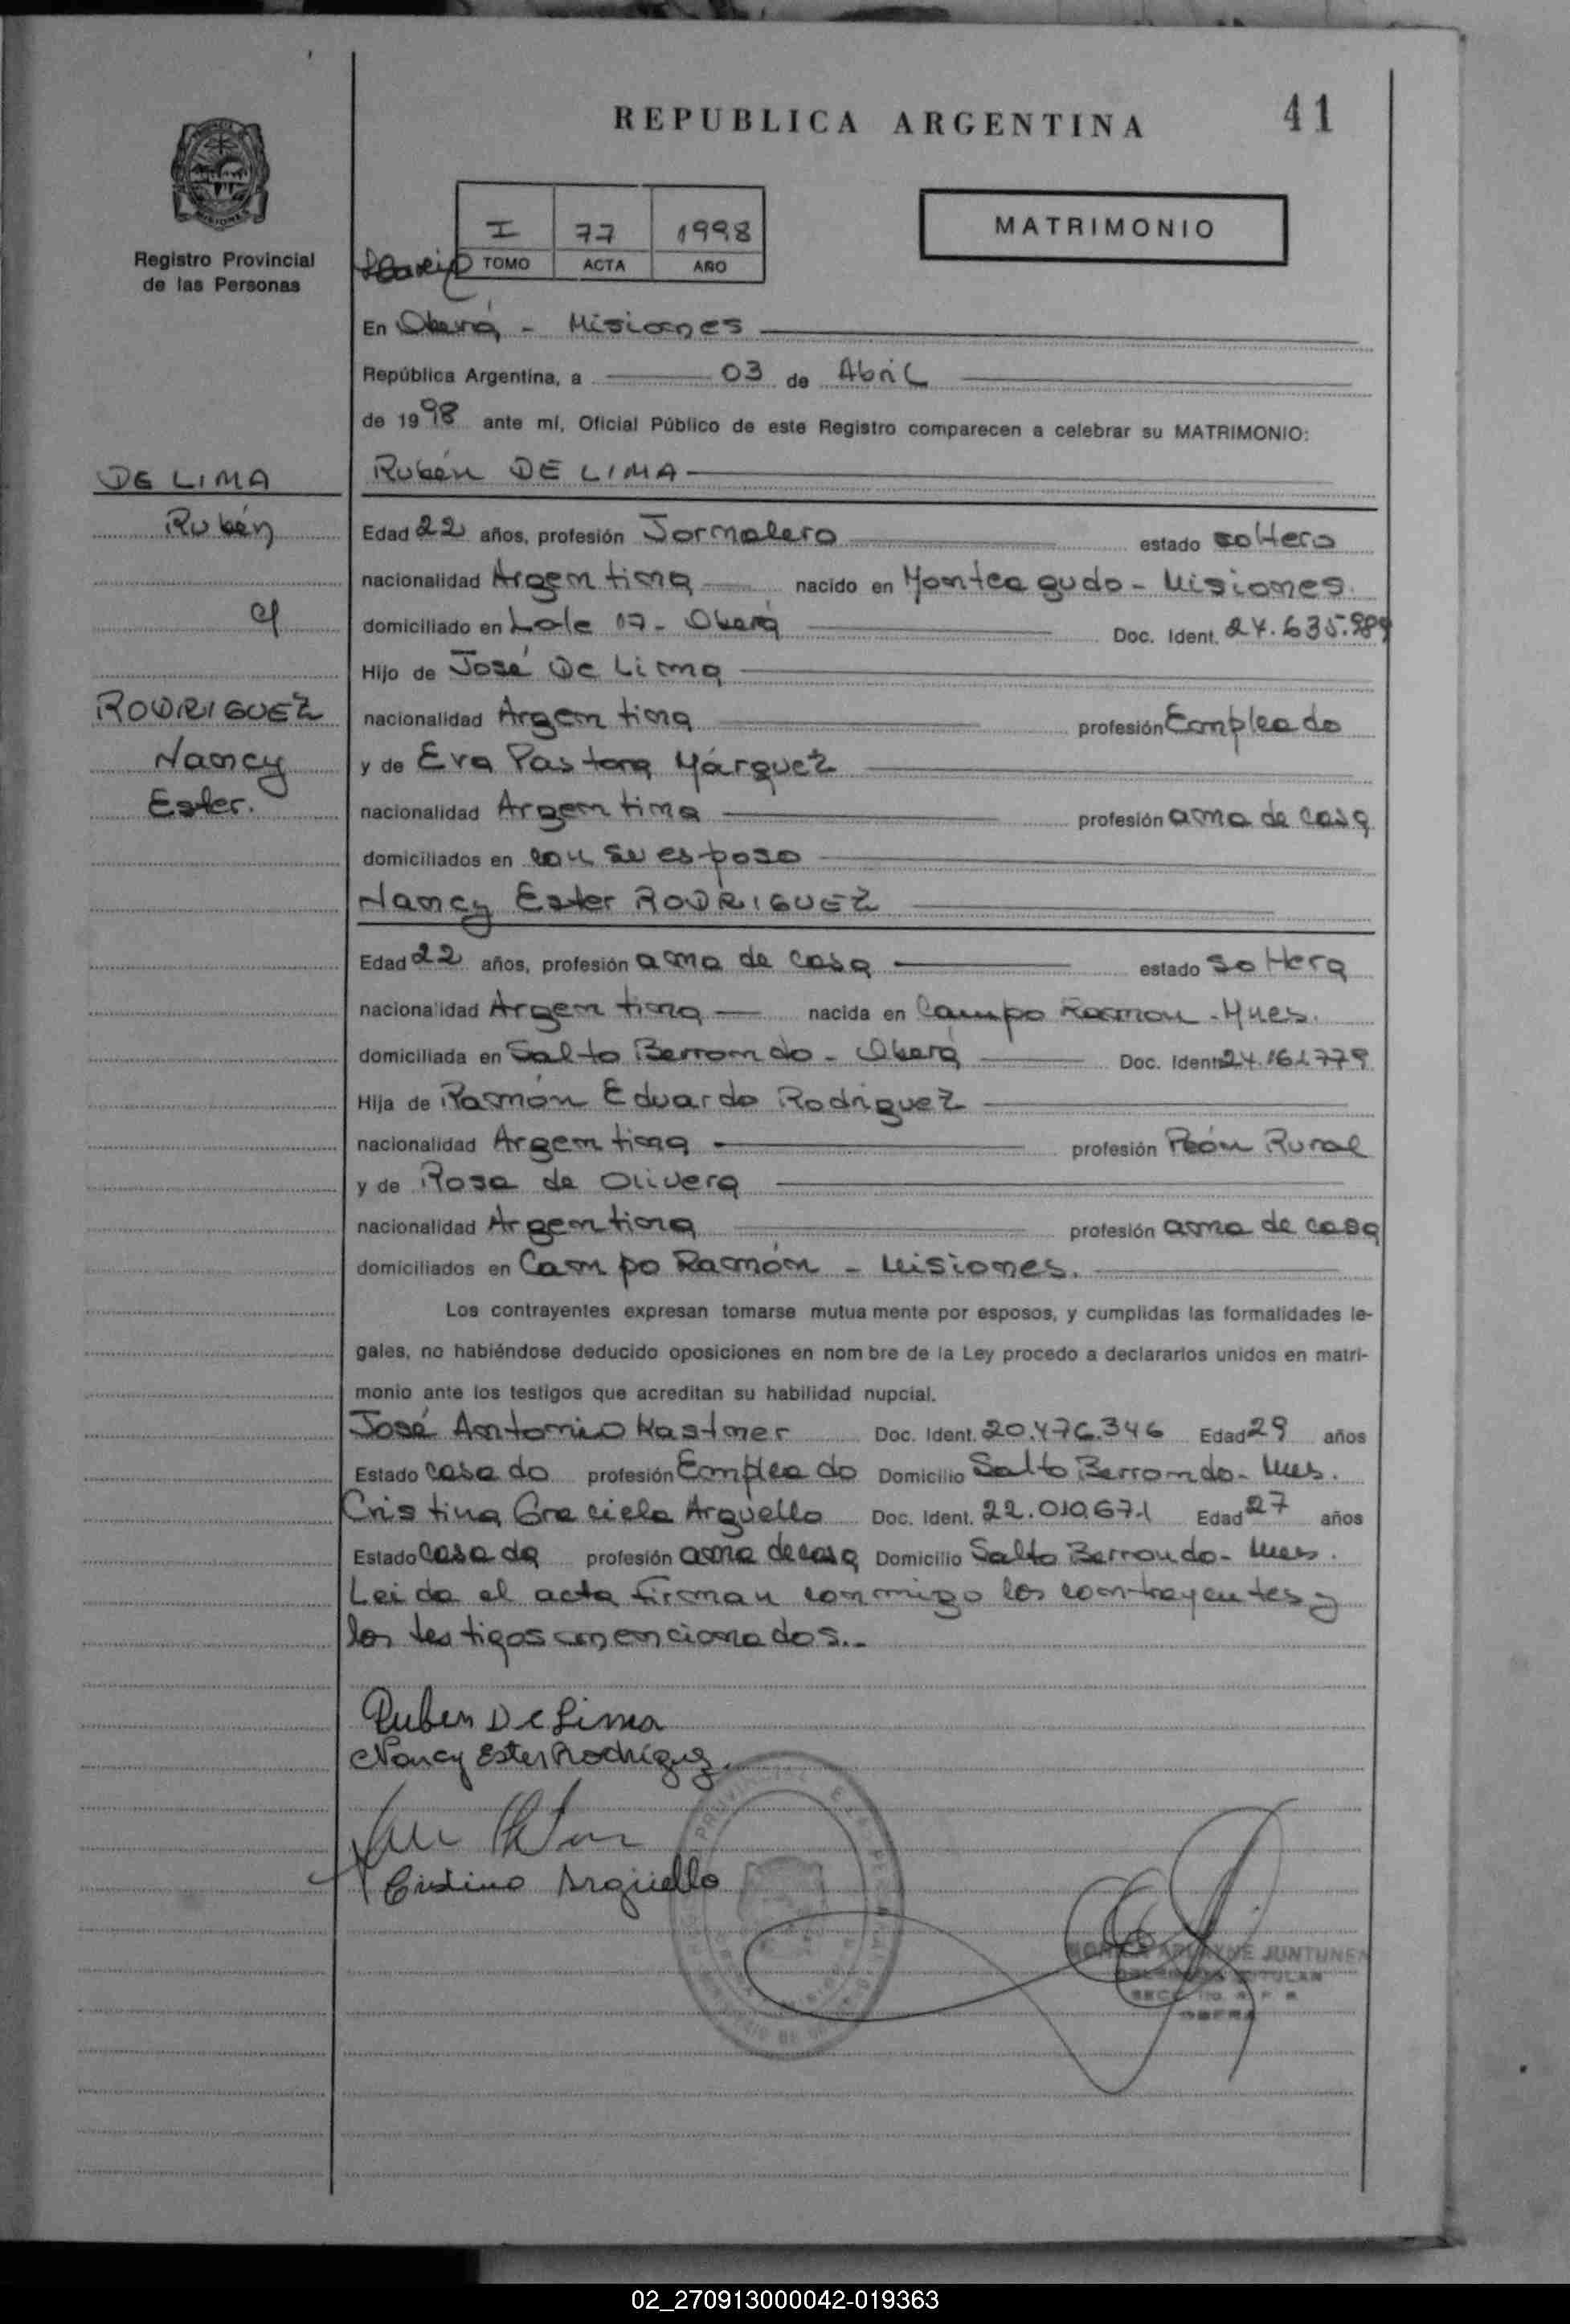 REPUBLICA ARGENTINA
41
MATRIMONIO
I 77 1998
TOMO ACTA AÑO
MISIONES
Registro Provincial
de las Personas
En Oberá - Misiones
República Argentina, a 03 de Abril
de 1998 ante mí, Oficial Público de este Registro comparecen a celebrar su MATRIMONIO:
DE LIMA
Rubén
RODRIGUEZ
Nancy
Ester.
Rubén DE LIMA
Edad 22 años, profesión Jornalero estado soltero
nacionalidad Argentina nacido en Monteagudo - Misiones.
domiciliado en Lote 17 - Oberá Doc. Ident. 24.635.989
Hijo de José De Lima
nacionalidad Argentina profesión Empleado
y de Eva Pastora Márquez
nacionalidad Argentina profesión ama de casa
domiciliados en con su esposo
Nancy Ester RODRIGUEZ
Edad 22 años, profesión ama de casa estado soltera
nacionalidad Argentina nacida en Campo Ramon - Mnes.
domiciliada en Salto Berrondo - Oberá Doc. Ident. 24.161.779
Hija de Ramón Eduardo Rodriguez
nacionalidad Argentina profesión Peón Rural
y de Rosa de Olivera
nacionalidad Argentina profesión ama de casa
domiciliados en Campo Ramón - Misiones.
Los contrayentes expresan tomarse mutua mente por esposos, y cumplidas las formalidades le-
gales, no habiéndose deducido oposiciones en nom bre de la Ley procedo a declararlos unidos en matri-
monio ante los testigos que acreditan su habilidad nupcial.
José Antonio Kastner Doc. Ident. 20.476.346 Edad 29 años
Estado casado profesión Empleado Domicilio Salto Berrondo - Mnes.
Cristina Graciela Argüello Doc. Ident. 22.010.671 Edad 27 años
Estado casada profesión ama de casa Domicilio Salto Berrondo - Mnes.
Leida el acta firman conmigo los contrayentes y
los testigos mencionados..-
Ruben De Lima
Nancy Ester Rodríguez
Cristina Argüello
JUNTUNEN
OBERA
02_270913000042-019363